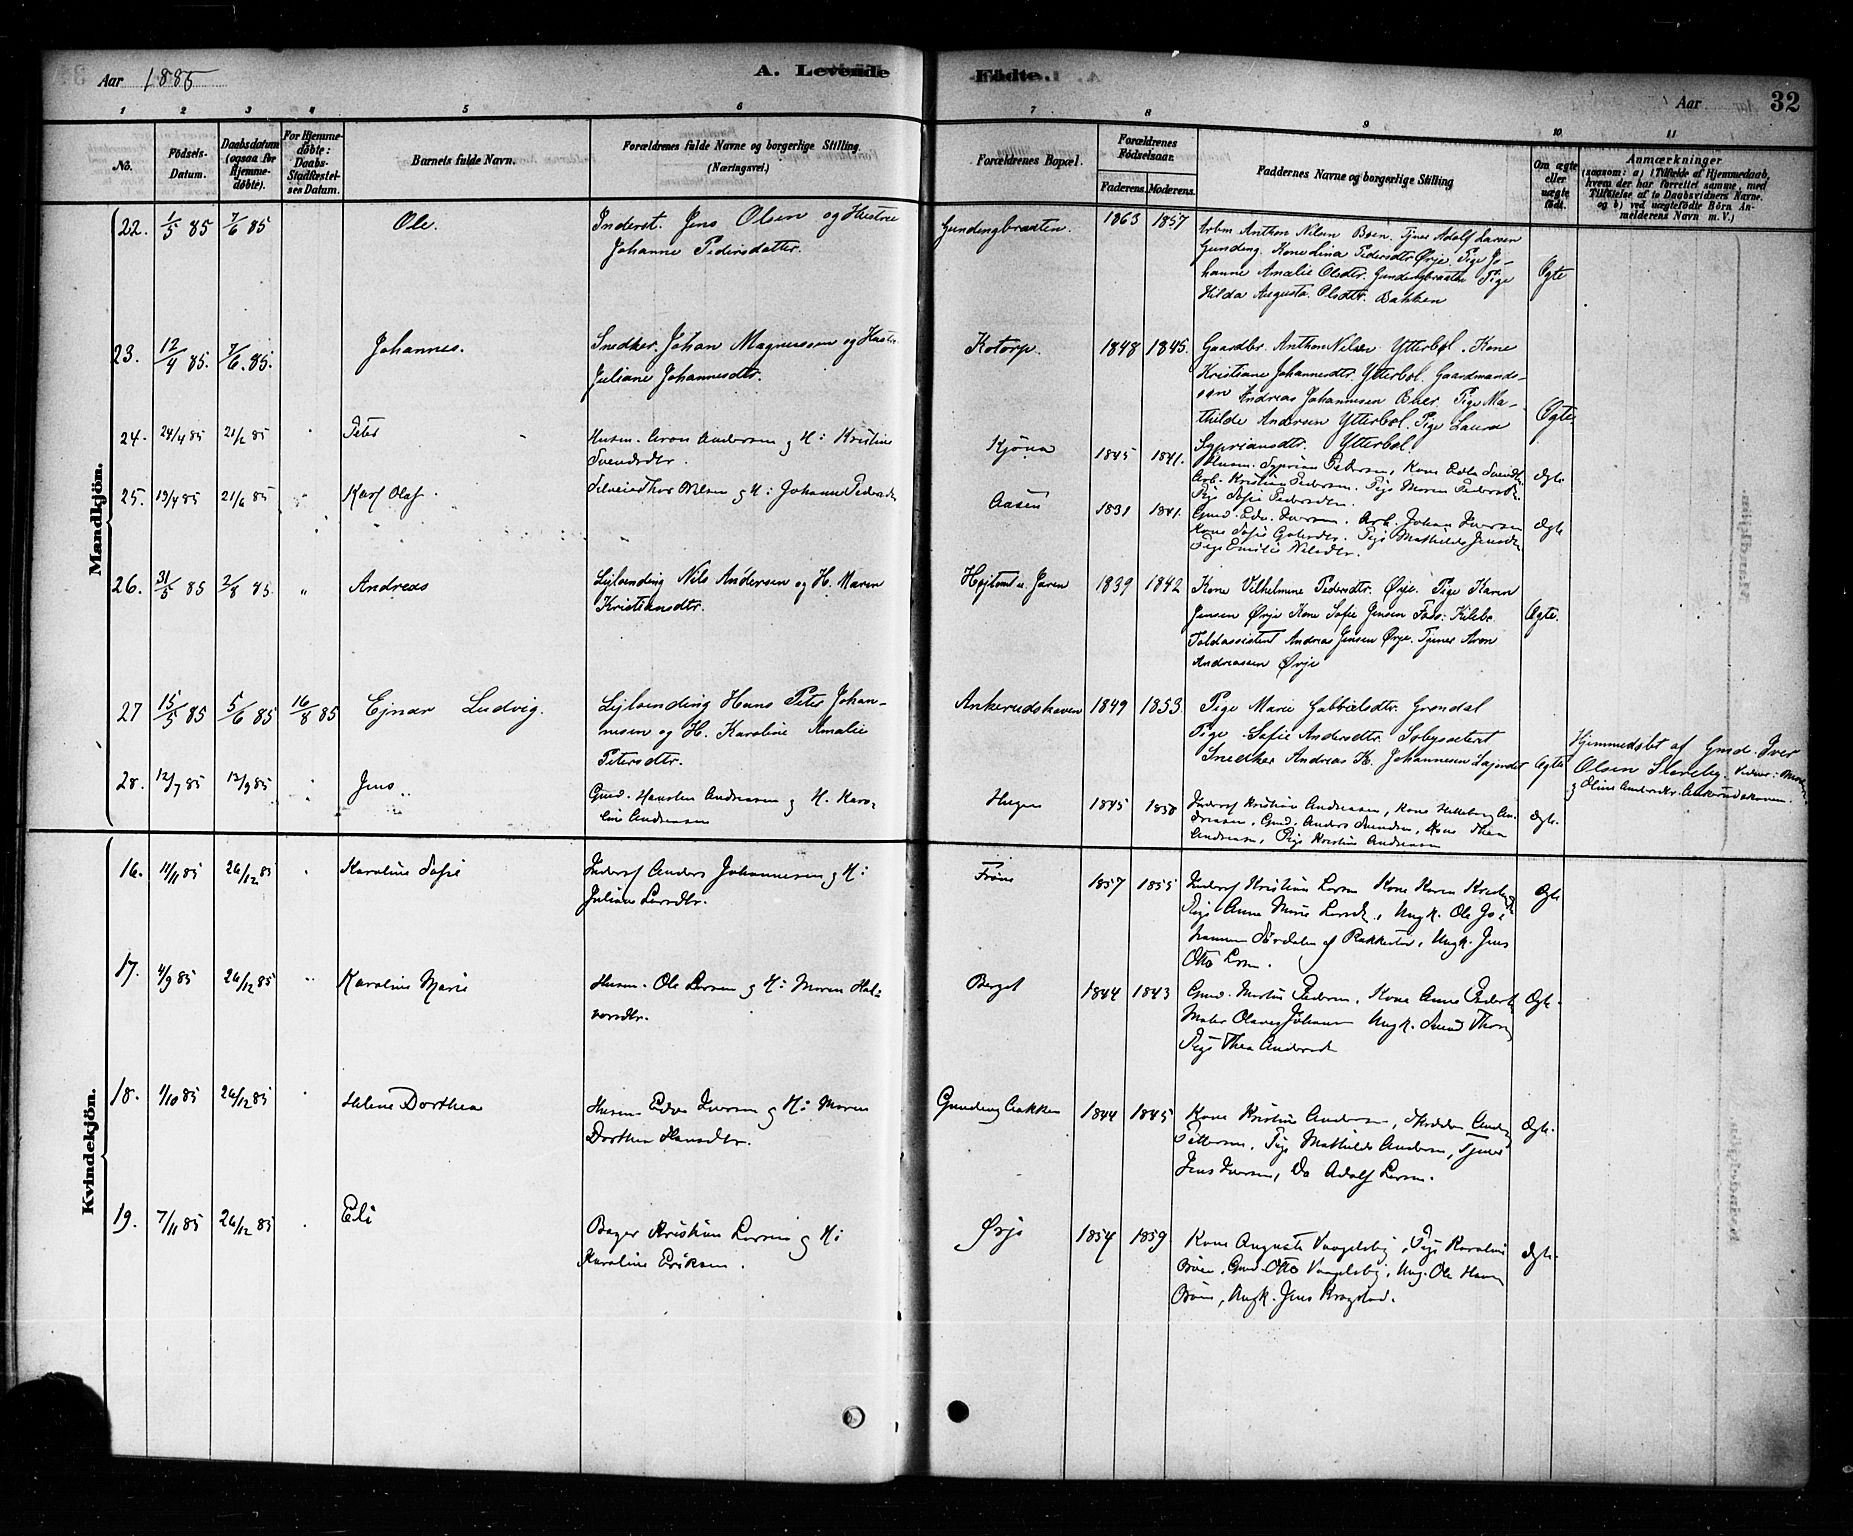 Aar 1885
A. Levende
Fødte.
Aar
32
1 2 3 4 5 6 7 8 9 10 11
No.
Fødsels-Datum.
Daabsdatum (ogsaa for Hjemme-døbte).
For Hjemme-døbte: Daabs-Stadfæstel-ses Datum.
Barnets fulde Navn.
Forældrenes fulde Navne og borgerlige Stilling. (Næringsvei.)
Forældrenes Bopæl.
Forældrenes Fødselsaar.
Faderens. Moderens.
Faddernes Navne og borgerlige Stilling
Om ægte eller uægte født.
Anmærkninger
(saasom: a) i Tilfælde af Hjemmedaab, hvem der har forrettet samme, med Tilføielse af to Daabsvidners Navne, og b) ved uægtefødte Børn An-melderens Navn m. V.)
Mandkjön.
22. 1/5 85 7/6 85 Ole. Inderst. Jens Olsen og Hustru
Johanne Pedersdatter.
Gundengbraaten. 1863 1857
Arbm Anthon Nilsen Böen. Tjener Adolf Larsen
Gundeng. Kone Lina Pedersdtr Ørje. Pige Jo-
hanne Amalie Olsdtr. Gundengbraaten Pige
Hilda Augusta Olsdtr. Bakken
Ægte
23. 12/4 85. 7/6. 85. Johannes. Snedker. Johan Magnussen og Hustru
Juliane Johannesdtr.
Kotorp. 1848 1845.
Gaardbr. Anthon Nilsen Ytterböl. Kone
Kristiane Johannesdtr. Ytterböl. Gaardmands-
søn Andreas Johannesen Buer. Pige Ma-
thilde Andersen Ytterböl. Pige Laura
Sypriansdtr. Ytterböl.
Ægte.
24. 24/4 85 21/6 85 " Peter Husm. Aron Andersen og H: Kristine
Svendsdtr.
Kjöna 1845 1841.
Husm. Syprian Pedersen, Kone Edla Svendsdtr
Arb. Kristian Pedersen. Pige Maren Pedersdtr.
Pige Sofie Pedersdtr.
Ægte
25. 19/4 85 21/6 85 " Karl Olaf. Thor Nilsen og H: Johanne Pedersdtr
Aasen 1831 1841.
Gmd. Edv. Iversen. Arb. Johan Iversen
Kone Sofie Pige Mathilde Jensdtr
Pige Emilie Nilsdtr.
Ægte
26. 31/5 85 2/8 85. " Andreas Lejlænding Nils Andersen og H. Maren
Kristiansdtr.
Höjtomt u. Jaren 1839 1842
Kone Vilhelmine Pedersdtr. Ørje. Pige Karen
Jensen Ørje Kone Sofie Jensen Kilebo.
Toldassistent Andreas Jensen Ørje. Tjener Aron
Andreassen Ørje
Ægte.
27 15/5 85 5/6 85 16/8 85 Ejnar Ludvig. Lejlænding Hans Peter Johan-
nesen og H. Karoline Amalie
Petersdtr.
Ankerudskoven 1849 1853.
Pige Marie Gabrielsdtr. Grøndal
Pige Sofie Andersdtr. Sobysæteret
Snedker Andreas H. Johannesen
Ægte
Hjemmedöbt af Gmd. Iver
Olsen Slareby.
Ankerudskoven.
28. 12/7 85 13/9 85 " Jens.. Gmd. Andreasen og H. Karo-
line Andreasen
Hagen 1845 1850
Inderst Kristian Andreasen, Kone An-
dreasen, Gmd. Anders Svendsen, Kone Thea
Andreasen, Pige Kristine Andreasen
Ægte.
Kvindekjön.
16. 11/11 85 26/12 85 " Karoline Sofie Inderst Anders Johannesen og H:
Juliane Larsdtr.
Fröne 1857 1855
Inderst Kristian Larsen Kone Karen
Pige Anne Marie Larsdtr, Ungk. Ole Jo-
hannesen af Rakkestad, Ungk. Jens
Otto Larsen.
Ægte
17. 4/9 85 26/12 85 " Karoline Marie Husm. Ole Larsen og H: Maren Hal-
vorsdtr.
Berget 1844 1843
Gmd. Martin Pedersen, Kone Anne Pedersdtr
Maler Olaves Johansen Ungk.
Pige Thea Andersdtr
Ægte.
18. 1/10 85 26/12 85 " Helene Dorthea Husm. Edv. Iversen og H: Maren
Dorthea Hansdtr.
Gundeng bakken 1844 1845
Kone Kristine Andersen, Skrædder
Pettersen, Pige Mathilde Andersen, Tjener
Jens Iversen, Do Adolf Larsen.
Ægte.
19. 7/11 85 26/12 85 " Eli Bager Kristian Larsen og H:
Karoline Eriksen.
Ørje 1854 1859
Kone Auguste Vaagelsby, Pige Karoline
Böen, Gmd. Otto Vaagelsby, Ung. Ole Hansen
Böen, Ungk. Jens Krogstad.
Ægte